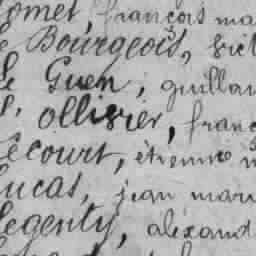 omet, françois ma
Bourgeois, vict
Guen, guillau
ollivier, franç
Lecourt, étienne
Lucas, jean mari
Legenty, alexand